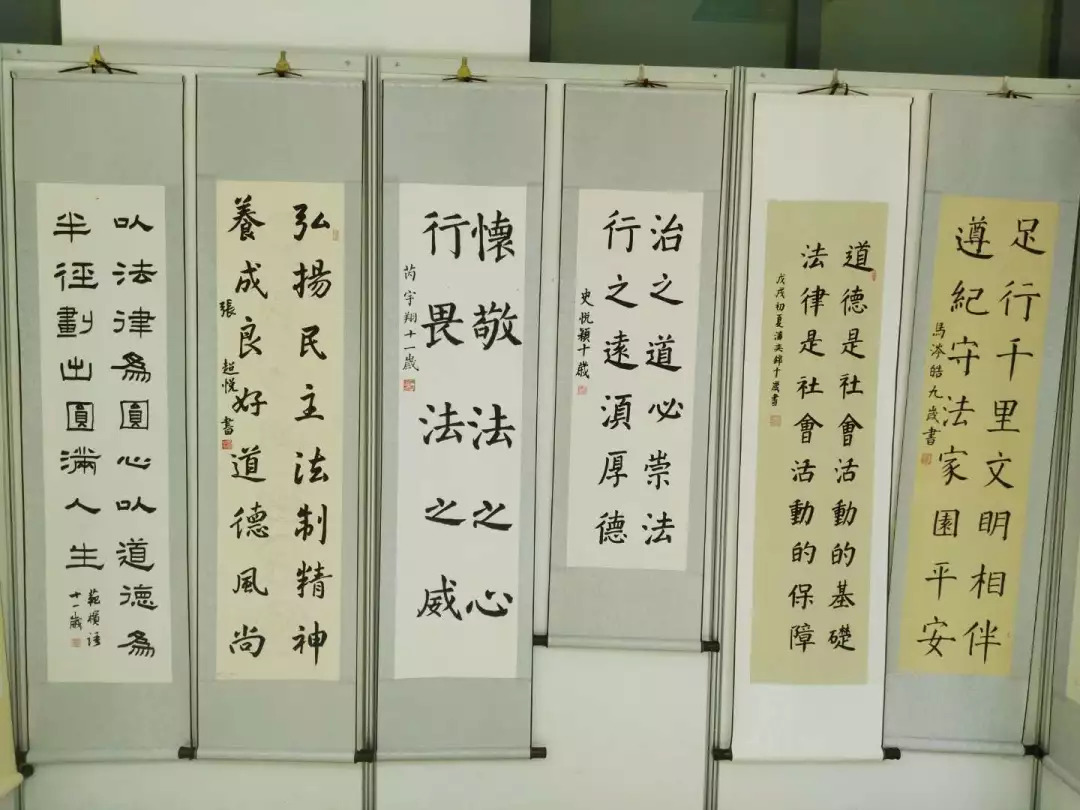 以法律為圓心以道德為
半徑劃出圓滿人生
十一歲
弘揚民主法制精神
養成良好道德風尚
張超悅書
懷敬法之心
行畏法之威
芮宇翔十一歲
治之道必崇法
行之遠須厚德
史悅穎十歲
道德是社會活動的基礎
法律是社會活動的保障
戊戌初夏潘錦十歲書
足行千里文明相伴
遵紀守法家園平安
馬岑皓九歲書